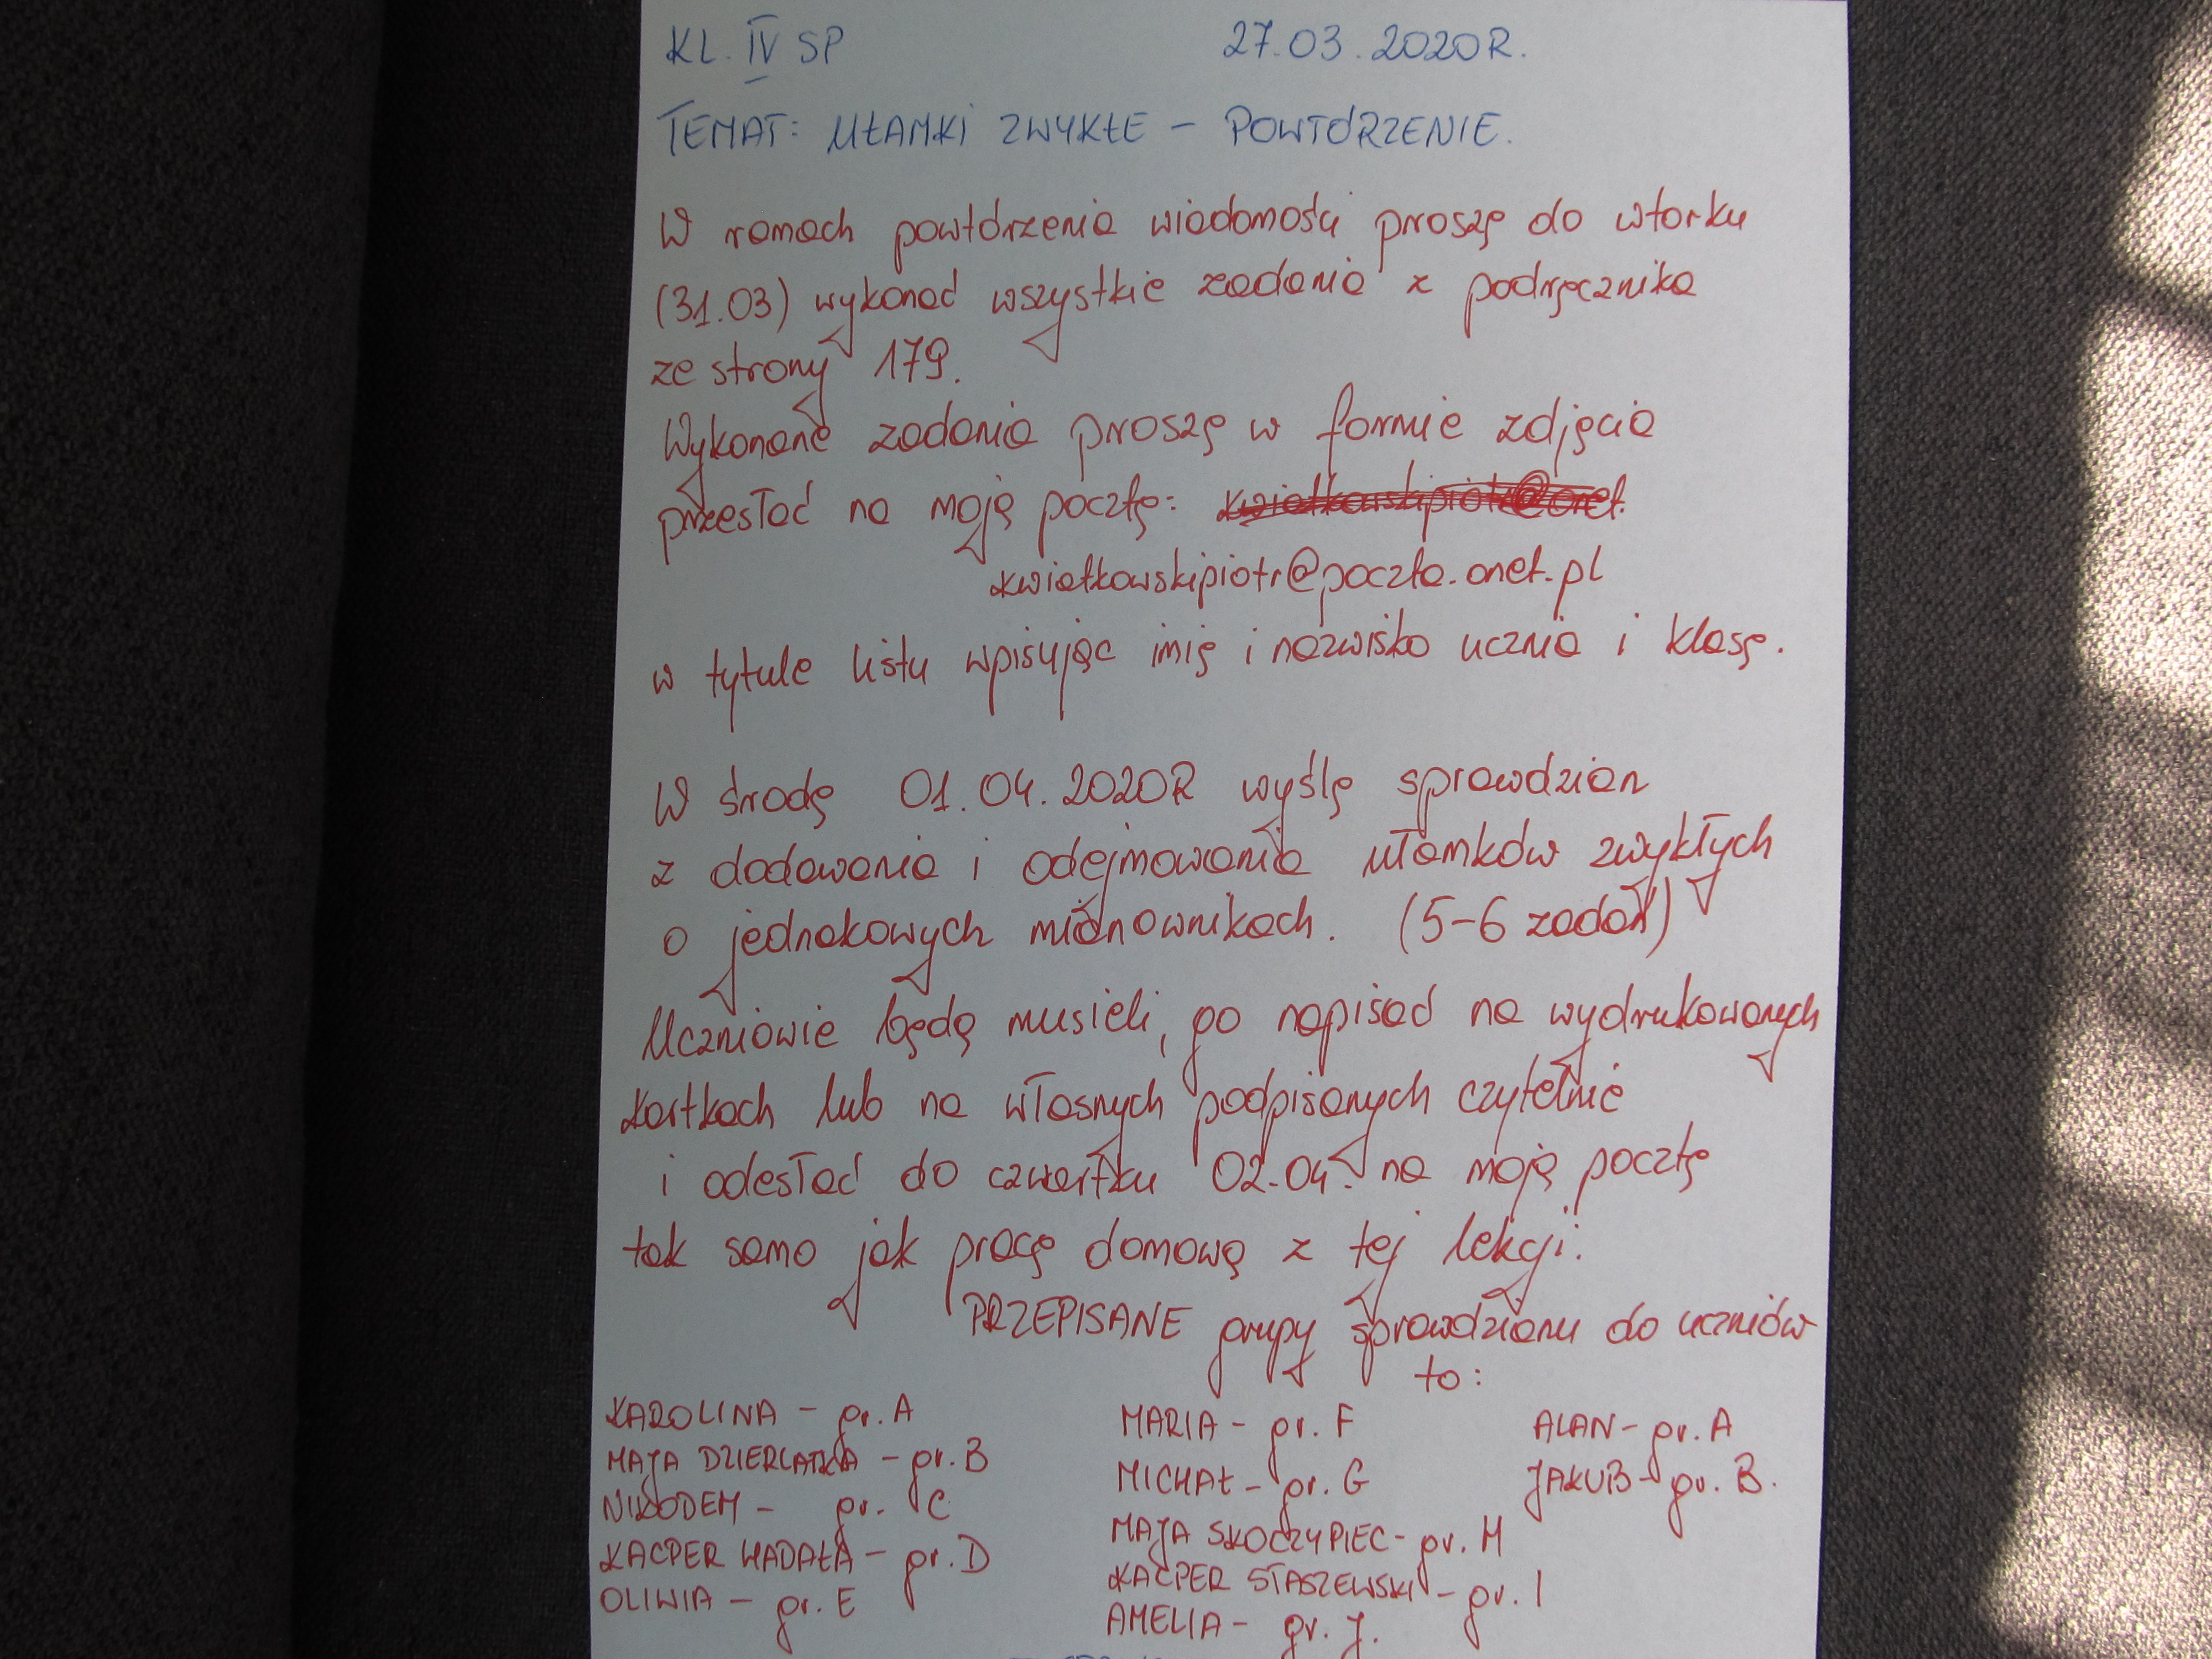 KL. IV SP 27.03.2020R.
TEMAT: UŁAMKI ZWYKŁE – POWTÓRZENIE.
W ramach powtórzenia wiadomości proszę do wtorku
(31.03) wykonać wszystkie zadania z podręcznika
ze strony 179.
Wykonane zadania proszę w formie zdjęcia
przesłać na moją pocztę: kwiatkowskipiotr@onet.
kwiatkowskipiotr@poczta.onet.pl
w tytule listu wpisując imię i nazwisko ucznia i klasę.
W środę 01.04.2020R wyślę sprawdzian
z dodawania i odejmowania ułamków zwykłych
o jednakowych mianownikach. (5-6 zadań)
Uczniowie będą musieli, go napisać na wydrukowanych
kartkach lub na własnych podpisanych czytelnie
i odesłać do czwartku 02.04. na moją pocztę
tak samo jak pracę domową z tej lekcji.
PRZEPISANE grupy sprawdzianu do uczniów
to:
KAROLINA – gr. A MARIA – gr. F ALAN – gr. A
MAJA DZIERLATKA – gr. B MICHAŁ – gr. G JAKUB – gr. B.
NIKODEM – gr. C MAJA SKOCZYPIEC – gr. H
KACPER WADAŁA – gr. D KACPER STASZEWSKI – gr. I
OLIWIA – gr. E AMELIA – gr. J.